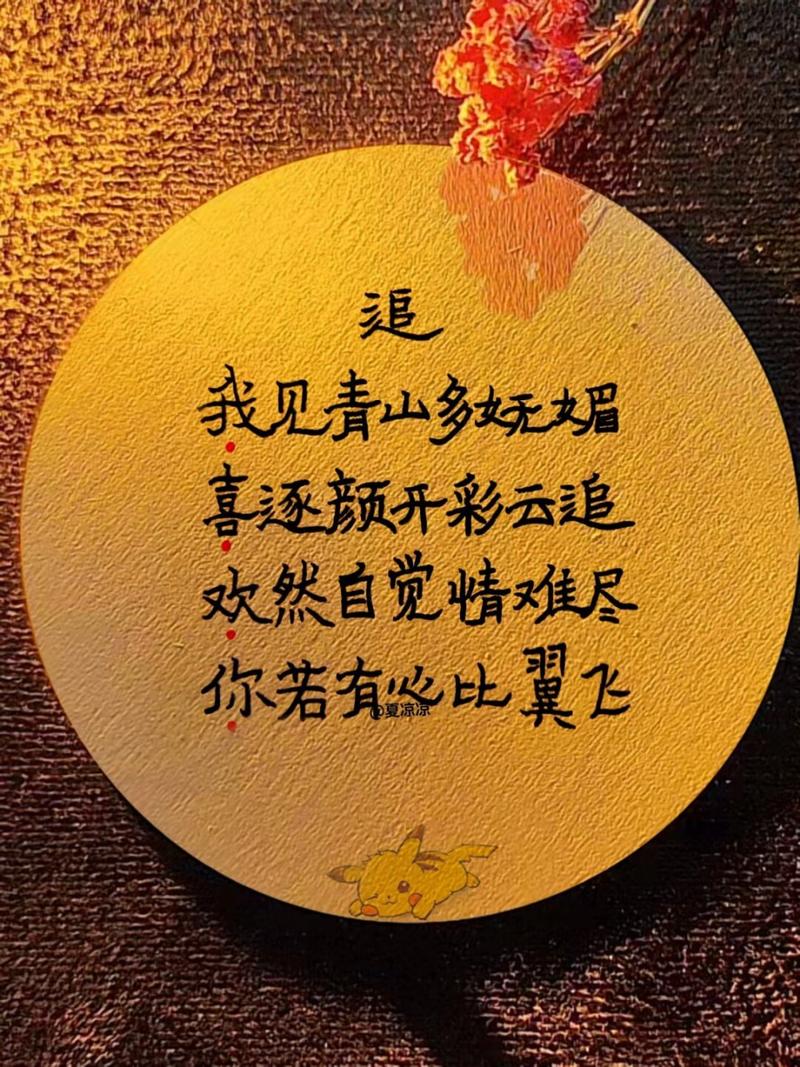 追
我见青山多妩媚
喜逐颜开彩云追
欢然自觉情难尽
你若有心比翼飞
@夏凉凉